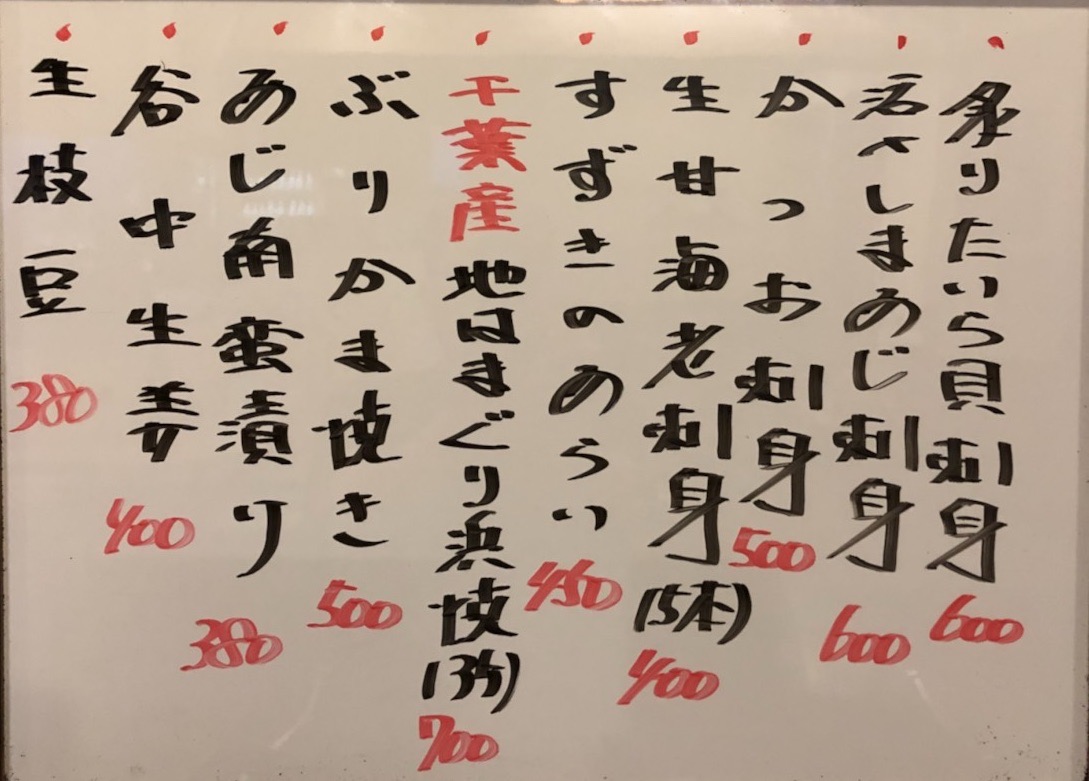 炙りたいら貝刺身 600
活〆しまあじ刺身 600
かつお刺身 500
生甘海老刺身(5本) 400
すずきのあらい 450
千葉産地はまぐり浜焼(3ケ) 700
ぶりかま焼き 500
あじ南蛮漬り 380
谷中生姜 400
生枝豆 380